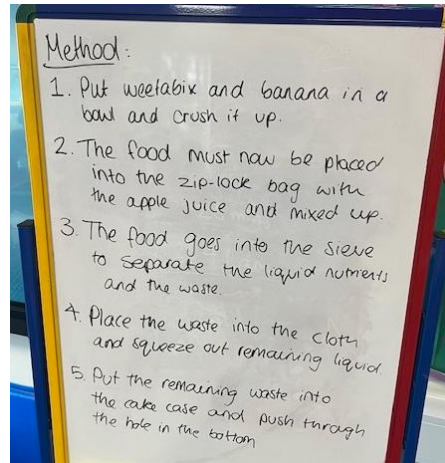 Method:
1. Put weetabix and banana in a
bowl and crush it up.
2. The food must now be placed
into the zip-lock bag with
the apple juice and mixed up.
3. The food goes into the sieve
to separate the liquid nutrients
and the waste.
4. Place the waste into the cloth
and squeeze out remaining liquid
5. Put the remaining waste into
the cake case and push through
the hole in the bottom